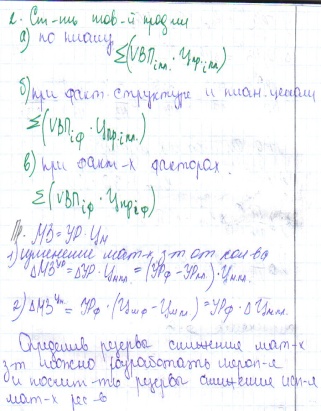 2. Ст-ть тов-й прод-ии
а) по плану
∑(VВП iпл. · Цпр. iпл.)
б) при факт. структуре и план. ценах
∑(VВП iф · Цпр. iпл.)
в) при факт-х факторах.
∑(VВП iф · Цпр iф)
Пр. МЗ = УР · Цм
1) изменение мат-х з-т от кол-ва
ΔМЗ^УР = ΔУР · Цм пл. = (УРф - УРпл) · Цм пл.
2) ΔМЗ^Цм = УРф · (Цмф - Цмпл) = УРф · ΔЦм пл.
Определив резервы снижения мат-х
з-т можно разработать мероп-я
и посчит-ть резервы снижения исп-я
мат-х рес-в